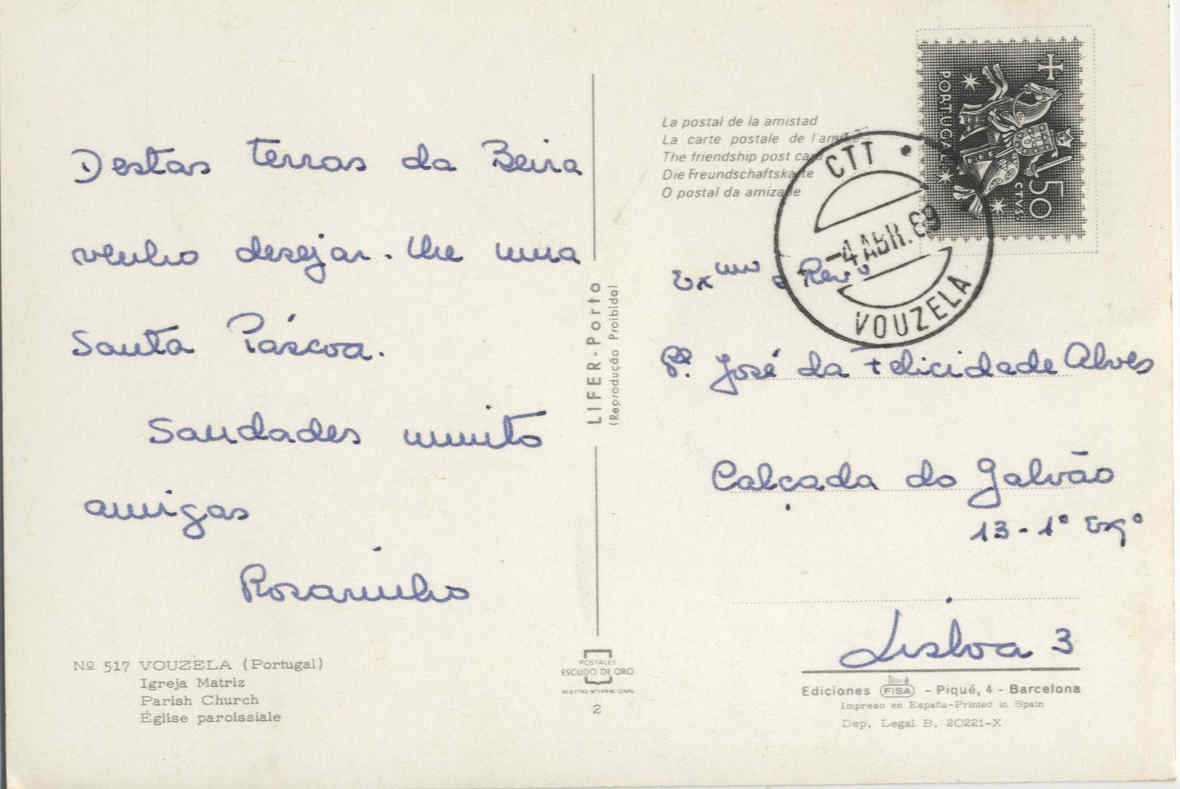 Destas terras da Beira
venho desejar-lhe uma
Santa Páscoa.
Saudades muito
amigas
Rosarinho
Nº 517 VOUZELA (Portugal)
Igreja Matriz
Parish Church
Église paroissiale
LIFER-Porto
(Reprodução Proibida)
POSTALES
ESCUDO DE ORO
2
La postal de la amistad
La carte postale de l'ami
The friendship post car
Die Freundschaftskarte
O postal da amizade
PORTUGAL
CTVS.
50
CTT
-4 ABR. 69
VOUZELA
Exmo e Revo
Pe. José da Felicidade Alves
Calçada do Galvão
13-1º Esqº
Lisboa 3
Ediciones FISA - Piqué, 4 - Barcelona
Impreso en España-Printed in Spain
Dep. Legal B. 20221-X